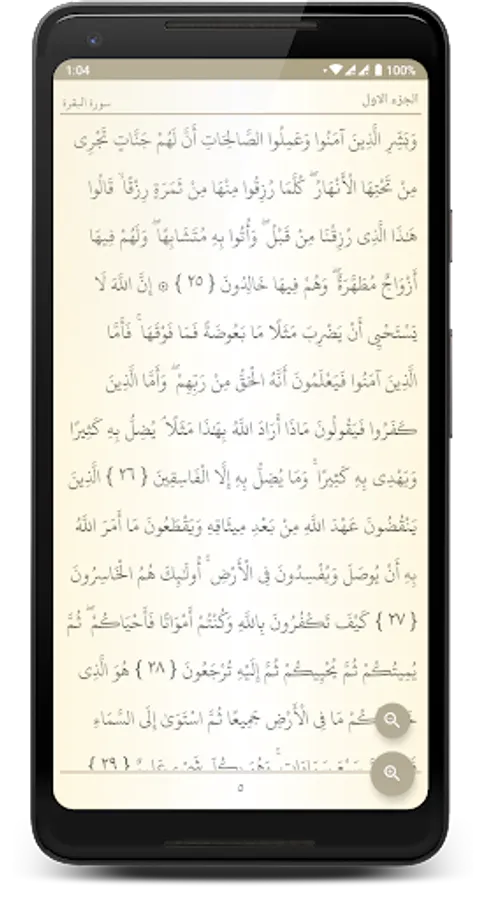 1:04 100%
الجزء الاول
سورة البقرة
وَبَشِّرِ الَّذِينَ آمَنُوا وَعَمِلُوا الصَّالِحَاتِ أَنَّ لَهُمْ جَنَّاتٍ تَجْرِى
مِنْ تَحْتِهَا الْأَنْهَارُ ۖ كُلَّمَا رُزِقُوا مِنْهَا مِنْ ثَمَرَةٍ رِزْقًا ۙ قَالُوا
هَٰذَا الَّذِى رُزِقْنَا مِنْ قَبْلُ ۖ وَأُتُوا بِهِ مُتَشَابِهًا ۖ وَلَهُمْ فِيهَا
أَزْوَاجٌ مُطَهَّرَةٌ ۖ وَهُمْ فِيهَا خَالِدُونَ { ٢٥ } ۞ إِنَّ اللَّهَ لَا
يَسْتَحْيِى أَنْ يَضْرِبَ مَثَلًا مَا بَعُوضَةً فَمَا فَوْقَهَا ۚ فَأَمَّا
الَّذِينَ آمَنُوا فَيَعْلَمُونَ أَنَّهُ الْحَقُّ مِنْ رَبِّهِمْ ۖ وَأَمَّا الَّذِينَ
كَفَرُوا فَيَقُولُونَ مَاذَا أَرَادَ اللَّهُ بِهَٰذَا مَثَلًا ۘ يُضِلُّ بِهِ كَثِيرًا
وَيَهْدِى بِهِ كَثِيرًا ۚ وَمَا يُضِلُّ بِهِ إِلَّا الْفَاسِقِينَ { ٢٦ } الَّذِينَ
يَنْقُضُونَ عَهْدَ اللَّهِ مِنْ بَعْدِ مِيثَاقِهِ وَيَقْطَعُونَ مَا أَمَرَ اللَّهُ
بِهِ أَنْ يُوصَلَ وَيُفْسِدُونَ فِى الْأَرْضِ ۚ أُولَٰئِكَ هُمُ الْخَاسِرُونَ
{ ٢٧ } كَيْفَ تَكْفُرُونَ بِاللَّهِ وَكُنْتُمْ أَمْوَاتًا فَأَحْيَاكُمْ ۖ ثُمَّ
يُمِيتُكُمْ ثُمَّ يُحْيِيكُمْ ثُمَّ إِلَيْهِ تُرْجَعُونَ { ٢٨ } هُوَ الَّذِى
مَا فِى الْأَرْضِ جَمِيعًا ثُمَّ اسْتَوَىٰ إِلَى السَّمَاءِ
{ ٢٩ }
٥